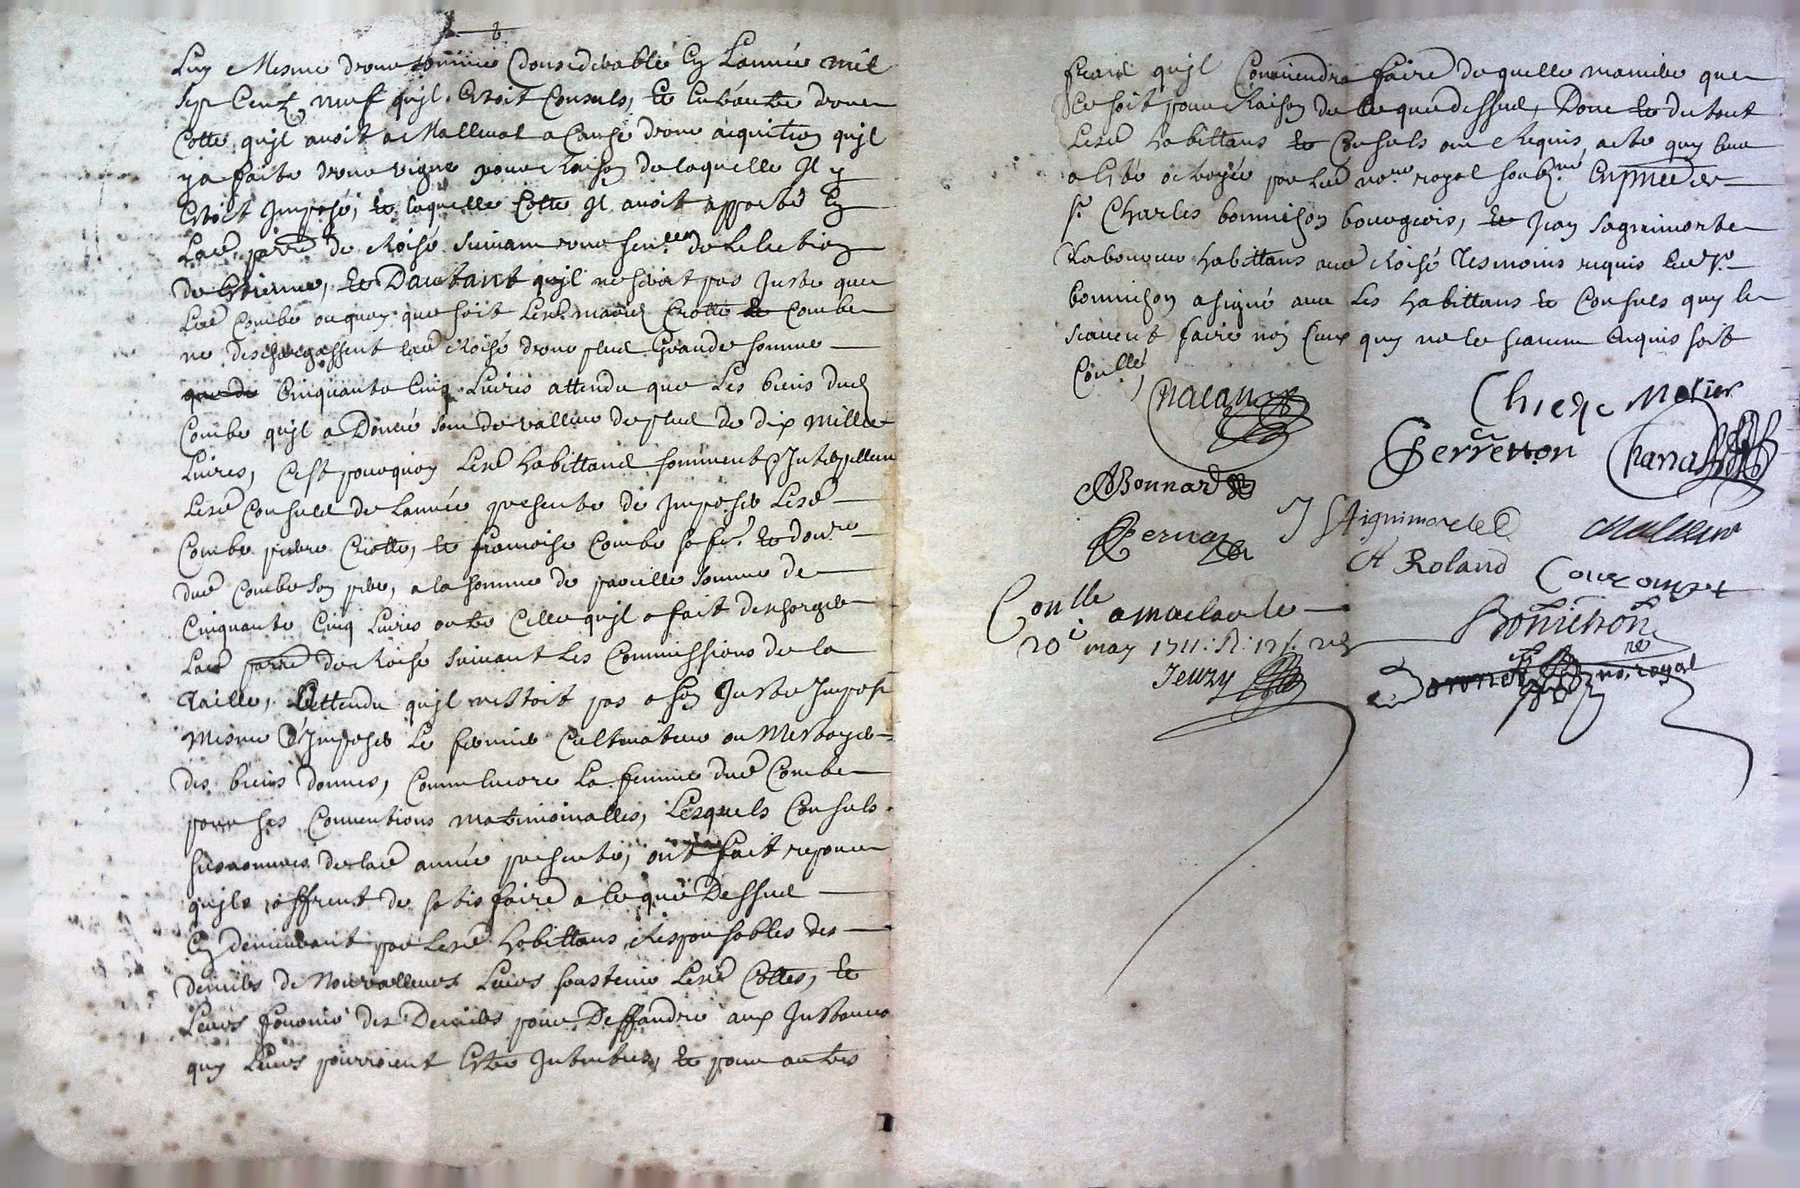 Luy Mesme d'une somme Considerable En Lannée mil
sept Cent neuf quil Estoit Consuls, Et Entre autre d'une
Cotte quil avoit a Malleval a Cause d'une acquition quil
y a faite d'une vigne pour Raison de laquelle Il y
Estoit Imposé, Et laquelle Cotte Il avoit apporté En
Lad. parr.e de Roisé suivant une sen.ce de Lelection
de St Etienne, Et Dautant quil ne seroit pas Juste que
Led. Combe ou quoy que soit Lesd. mariés Criotte Et Combe
ne deschargassent lad. Roisé d'une plus Grande somme
que de Cinquante Cinq Livres attendu que Les biens dud.
Combe quil a Donné sont de valleur de plus de dix mille
Livres, C'est pourquoy Lesd. habittans somment & Interpellent
Lesd. Consuls de Lannée presente de Imposer Lesd.
Combe pierre Criotte, Et francoise Combe sa fe. Et don.re
dud. Combe son pere, a la somme de pareille somme de
Cinquante Cinq Livres outre Celle quil a fait descharger
Lad. parr.e de Roisé suivant Les Commissions de la
Taille, Attendu quil nestoit pas a son Juste Impost
Mesme D'Imposer Le fermier Cultivateur ou Mestayer
des biens donnes, Comme Encore La femme dud. Combe
pour ses Conventions matrimonialles, Lesquels Consuls
susnommes de lad. année presente, ont fait reponce
quils offrent de satisfaire a ce que Dessus
En demeurant par Lesd. habittans Responsables des
deniers de Nonvalleurs Leurs soustenir Lesd. Cottes, Et
Leurs fournir des Deniers pour Deffandre aux Instances
quy Leurs pourroient Estre Intentées, Et pour autres
fraix quil Conviendra faire de quelle maniere que
Ce soit pour Raison de Ce que dessus, Dont Et du tout
Lesd. habittans Et Consuls ont Requis acte quy leur
a Esté octroyée par Led. no.re royal soub.né En p.nce de
s.r Charles bonnichon bourgeois, Et Jean sagnimorte
Laboureur habittans aud. Roisé Tesmoins requis Led. s.r
bonnichon a signé avec Les habittans Et Consuls quy le
scavent faire non Ceux quy ne le scavent Enquis soit
Con.llé
Chieze Metier
Perretton
Bonnard
J SAignimorte
A Roland
Con.lle a Maclas le
20e may 1711 R. 12 s.
Jeuzy
Bonnichon
Bonnet no.re royal